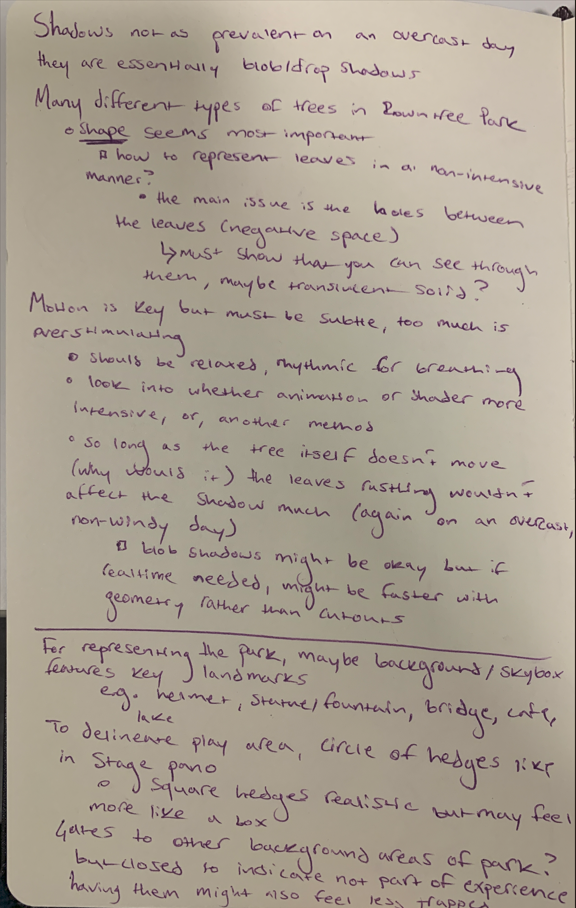 Shadows not as prevalent on an overcast day
they are essentially blob/drop shadows
Many different types of trees in Rowntree Park
shape seems most important
how to represent leaves in a non-intensive
manner?
the main issue is the holes between
the leaves (negative space)
↳must show that you can see through
them, maybe translucent solid?
Motion is key but must be subtle, too much is
overstimulating
should be relaxed, rhythmic for breathing
look into whether animation or shader more
intensive, or, another method
so long as the tree itself doesn't move
(why would it) the leaves rustling wouldn't
affect the shadow much (again on an overcast,
non-windy day)
blob shadows might be okay but if
realtime needed, might be faster with
geometry rather than cutouts
For representing the park, maybe background/skybox
features key landmarks
e.g. helmet, statue/fountain, bridge, cafe,
lake
To delineate play area, circle of hedges like
in Stage pano
Square hedges realistic but may feel
more like a box
Gates to other background areas of park?
but closed to indicate not part of experience
having them might also feel less trapped